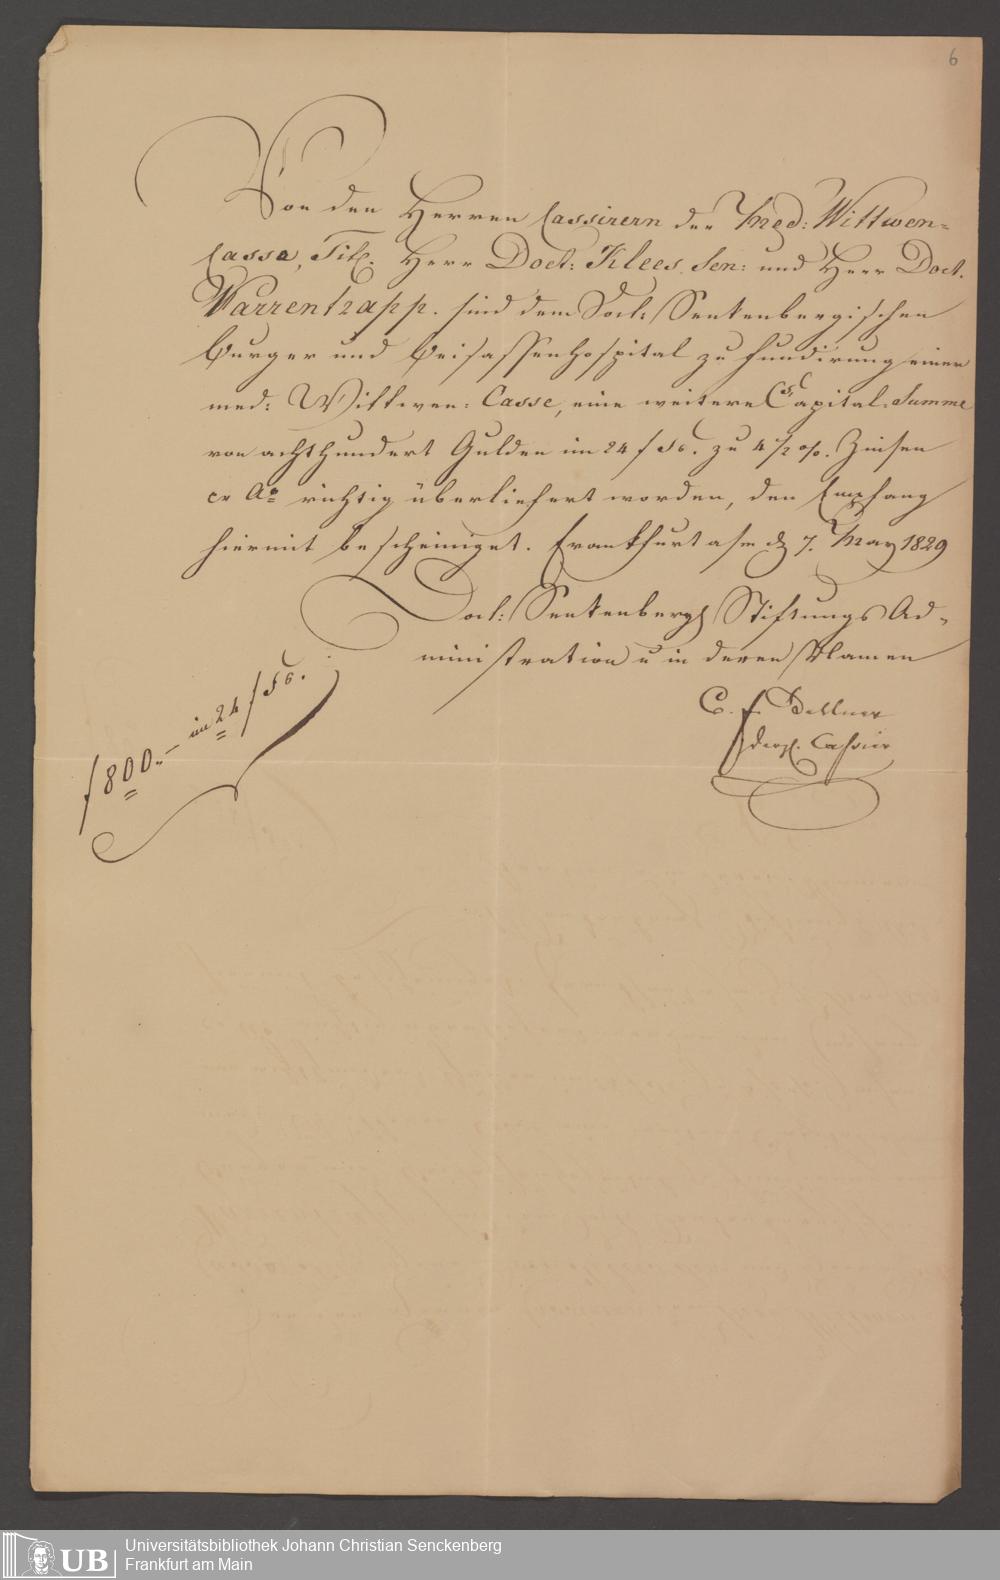 6
Von den Herren Cassirern der Med: Wittwen=
Cassa, Tit. Herr Doct: Klees, Sen: und Herr Doct.
Warrentrapp. sind dem Doct: Senkenbergischen
Burger und Beisassenhospital zu fundirung einer
med: Wittwen=Casse, eine weitere Capital=Summe
von achthundert Gulden im 24 f Fs. zu 4 1/2 %. Zinsen
richtig überliefert worden, den Empfang
hiermit bescheiniget. Frankfurt a/m d 7. May 1829
Doct: Senkenberg Stiftungs Ad=
ministration u in deren Namen
C. F.
Cassier
f 800.– im 24 f Fs.
UB Universitätsbibliothek Johann Christian Senckenberg
Frankfurt am Main